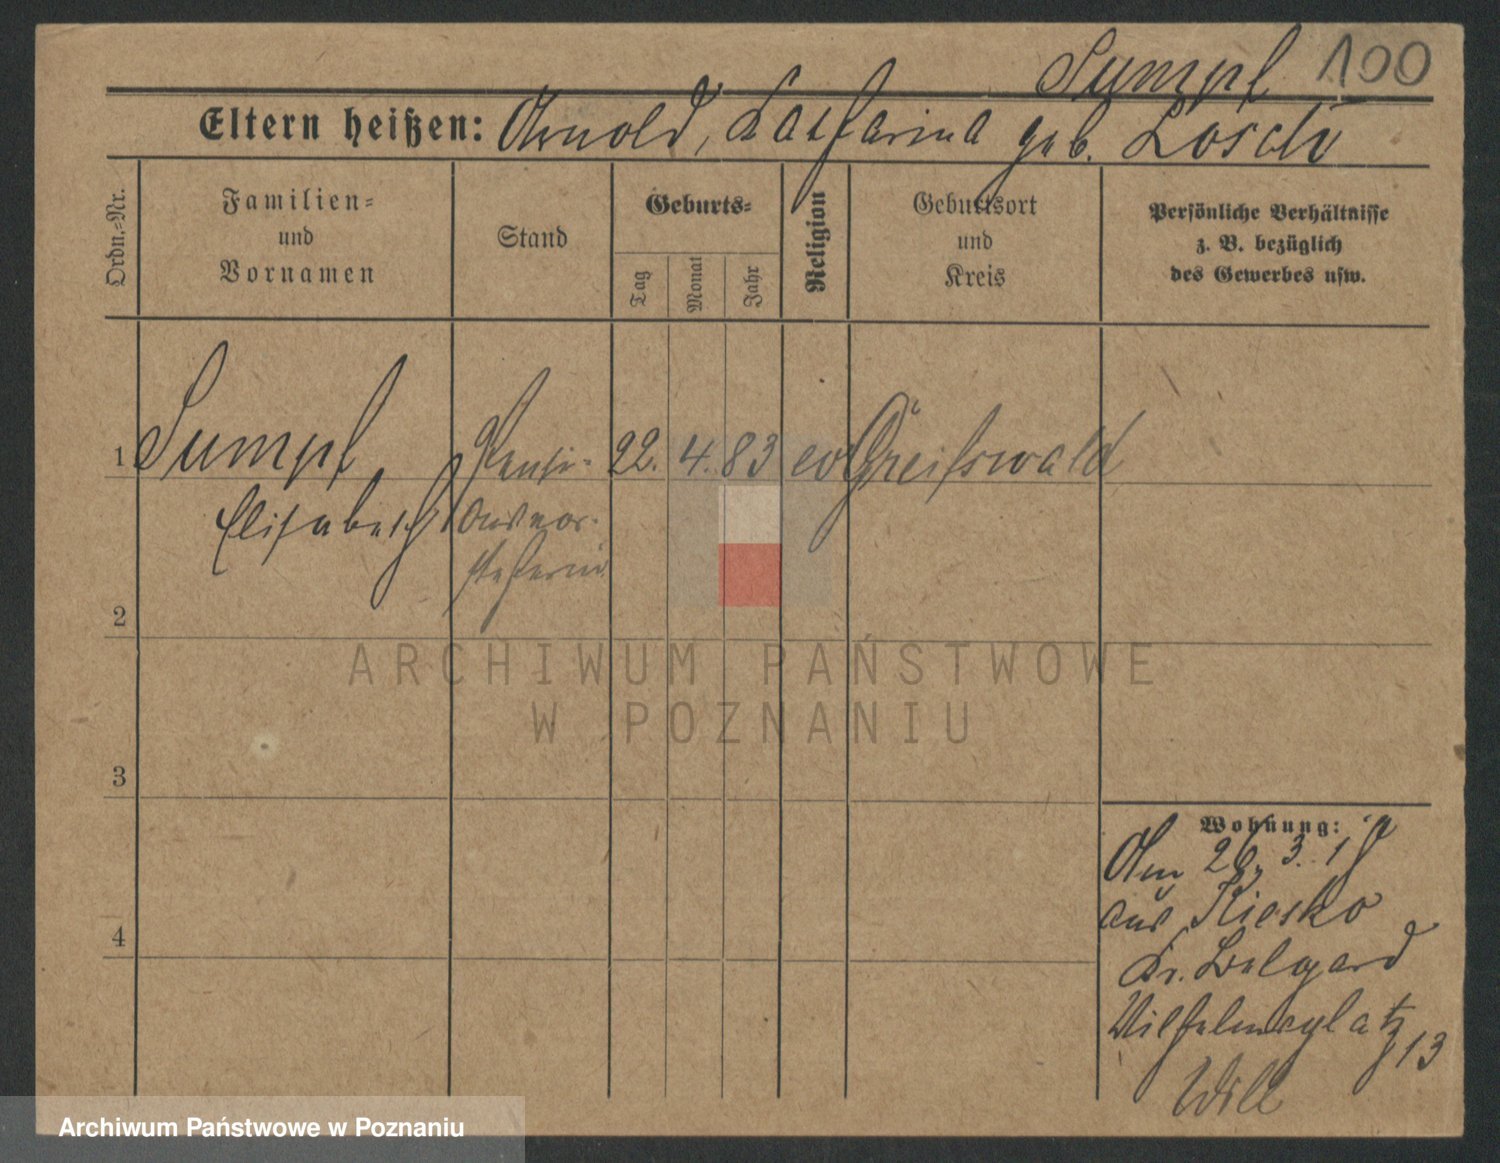 Sumpf 100
Eltern heißen: Arnold, Katharina geb. Losch
Ordn.-Nr.
Familien-
und
Vornamen
Stand
Geburts-
Tag
Monat
Jahr
Religion
Geburtsort
und
Kreis
Persönliche Verhältnisse
z. B. bezüglich
des Gewerbes usw.
1 Sumpf Pensi- 22. 4. 83 ev Greifswald
Elisabeth onsvor-
steherin
2
ARCHIWUM PAŃSTWOWE
W POZNANIU
3
4
Wohnung:
Am 26. 3. 19
aus
Kr. Belgard
Wilhelmsplatz 13
Archiwum Państwowe w Poznaniu